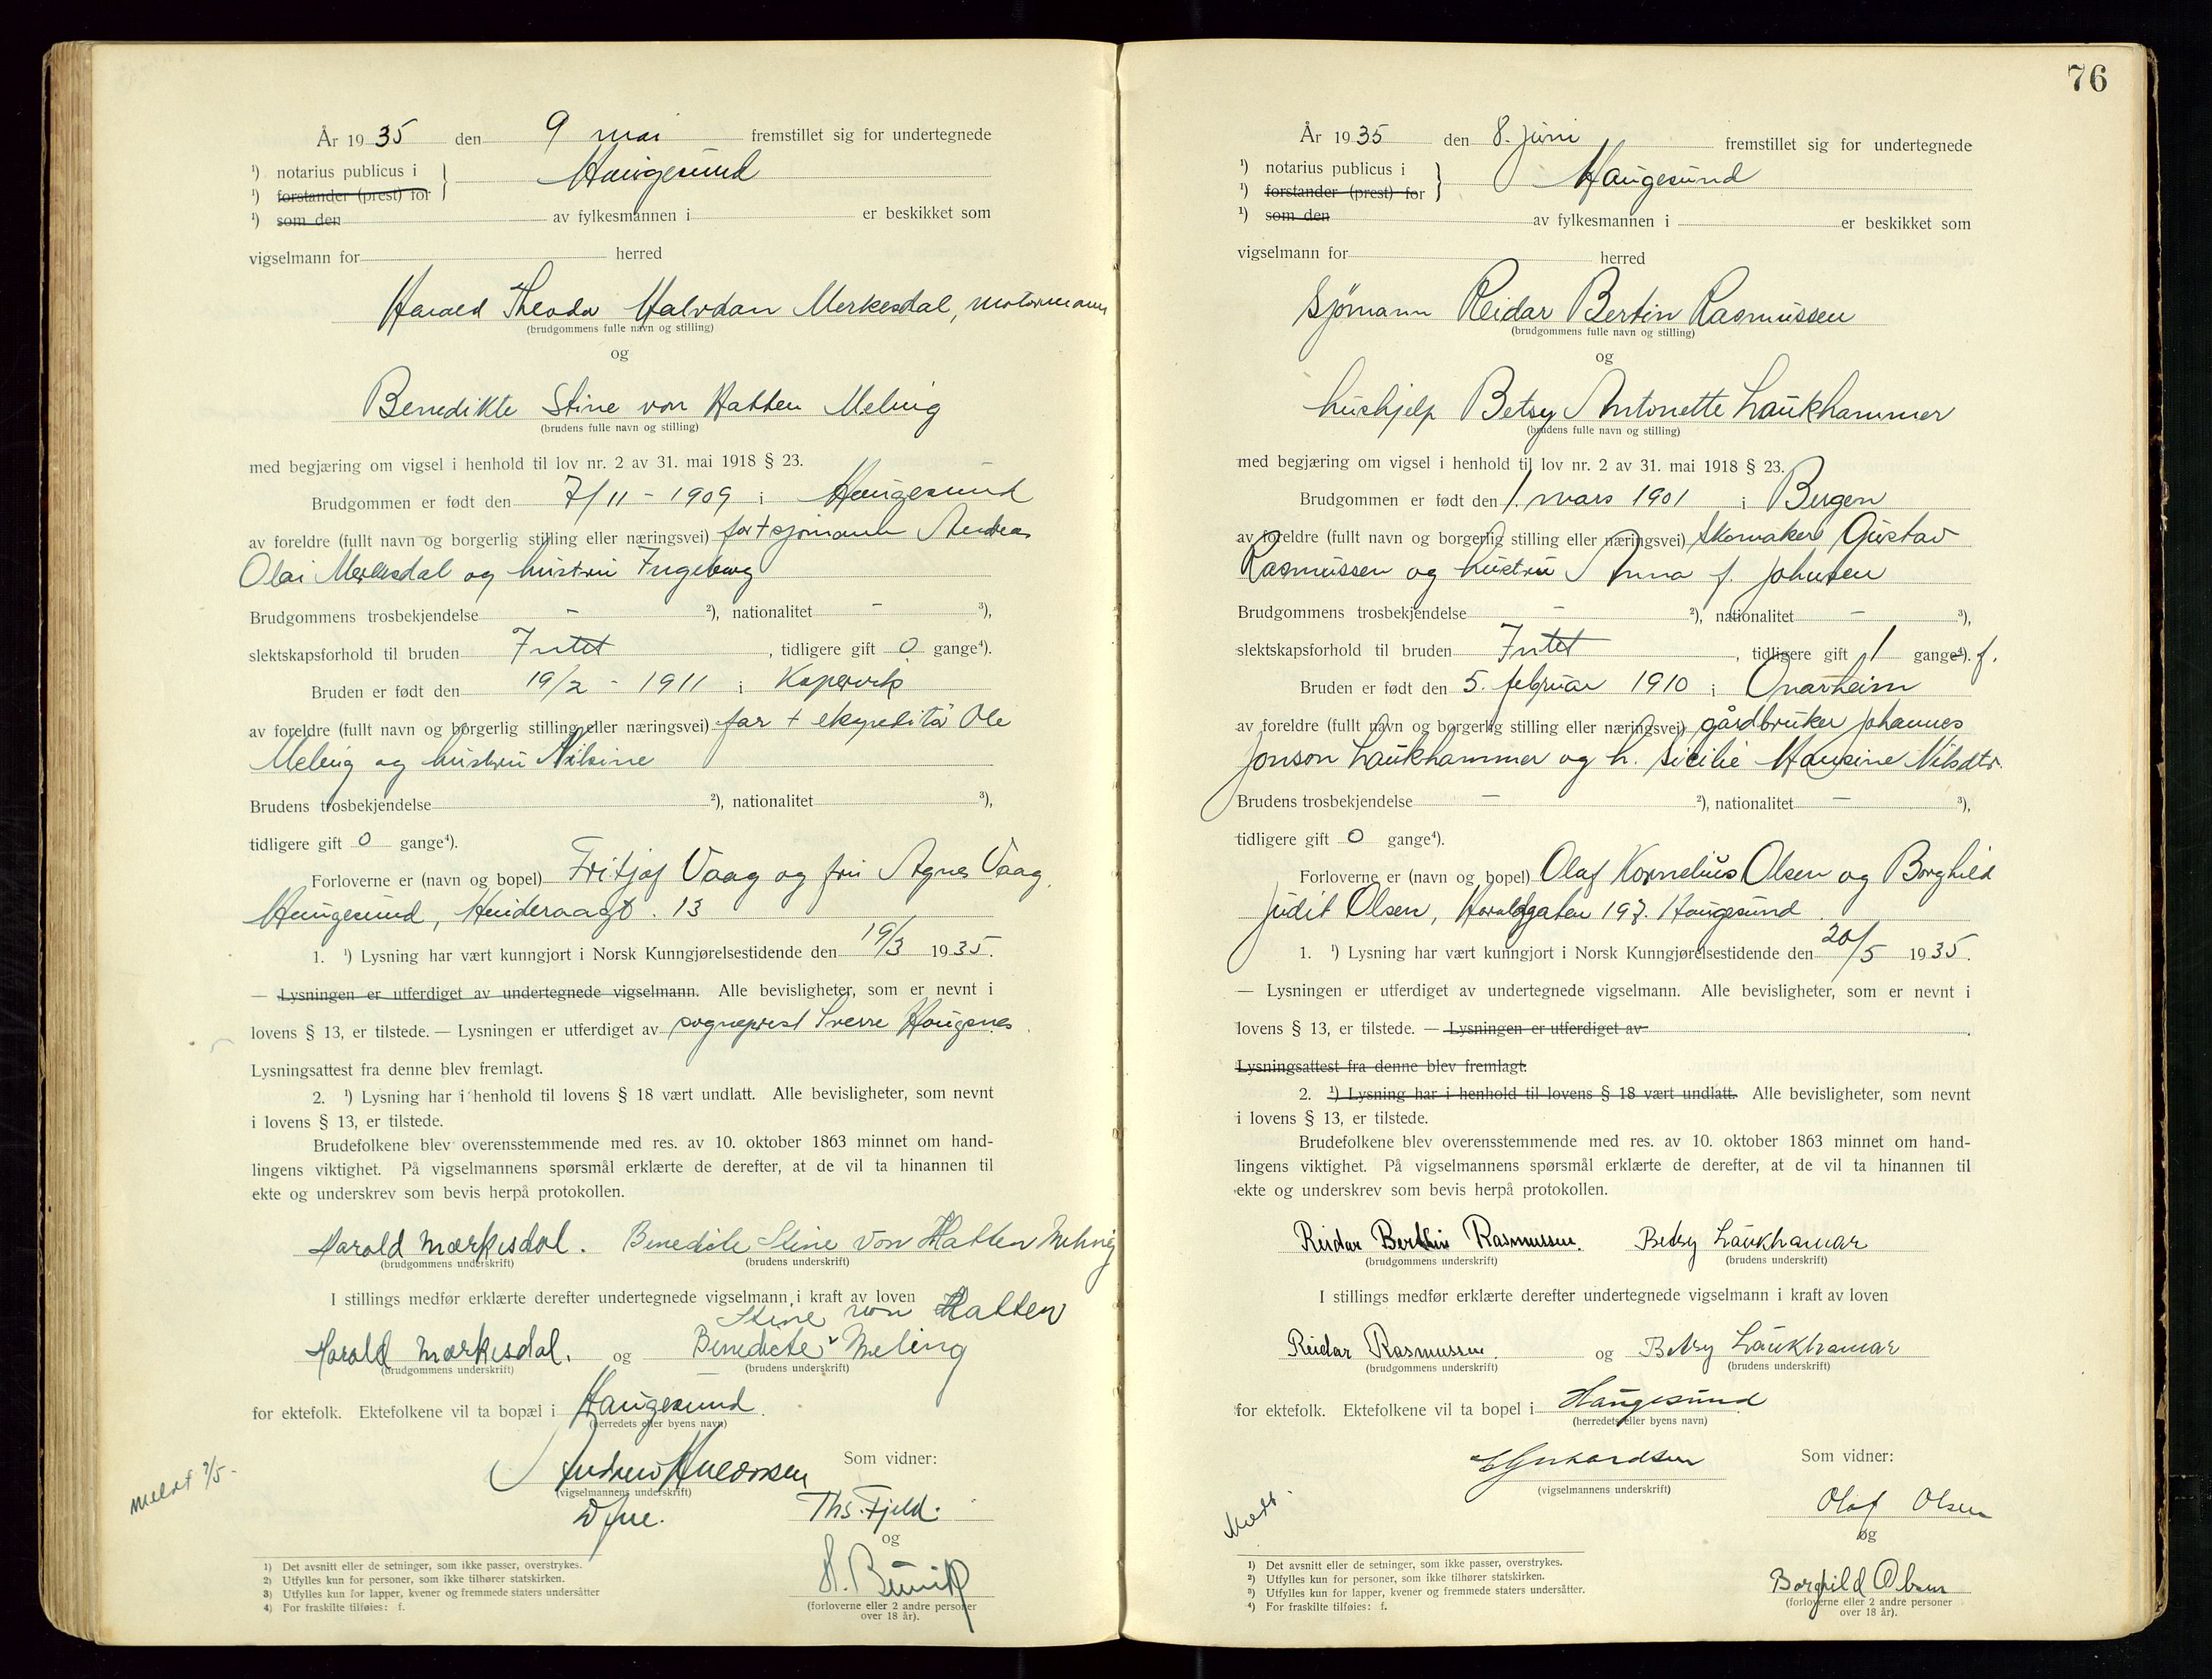 År 1935 den 9 mai fremstillet sig for undertegnede
¹) notarius publicus i } Haugesund
¹) forstander (prest) for
¹) som den av fylkesmannen i er beskikket som
vigselmann for herred
Harald Theodor Halvdan Merkesdal, motormann
(brudgommens fulle navn og stilling)
og
Benedikte Stine von Hatten Meling
(brudens fulle navn og stilling)
med begjæring om vigsel i henhold til lov nr. 2 av 31. mai 1918 § 23.
Brudgommen er født den 7/11 - 1909 i Haugesund
av foreldre (fullt navn og borgerlig stilling eller næringsvei) far + sjømann Andreas
Olai Merkesdal og hustru Ingeborg
Brudgommens trosbekjendelse - ²), nationalitet - ³),
slektskapsforhold til bruden Intet, tidligere gift 0 gange⁴).
Bruden er født den 19/2 - 1911 i Kopervik
av foreldre (fullt navn og borgerlig stilling eller næringsvei) far + ekspeditør Ole
Meling og hustru Nilsine
Brudens trosbekjendelse ²), nationalitet ³),
tidligere gift 0 gange⁴).
Forloverne er (navn og bopel) Fritjof Vaag og fru Agnes Vaag,
Haugesund, 13
1. ¹) Lysning har vært kunngjort i Norsk Kunngjørelsestidende den 19/3 1935.
— Lysningen er utferdiget av undertegnede vigselmann. Alle bevisligheter, som er nevnt i
lovens § 13, er tilstede. — Lysningen er utferdiget av sogneprest Sverre Haugsnes.
Lysningsattest fra denne blev fremlagt.
2. ¹) Lysning har i henhold til lovens § 18 vært undlatt. Alle bevisligheter, som nevnt
i lovens § 13, er tilstede.
Brudefolkene blev overensstemmende med res. av 10. oktober 1863 minnet om hand-
lingens viktighet. På vigselmannens spørsmål erklærte de derefter, at de vil ta hinannen til
ekte og underskrev som bevis herpå protokollen.
Harald Mærkesdal. Benedicte Stine von Hatten Meling
(brudgommens underskrift) (brudens underskrift)
I stillings medfør erklærte derefter undertegnede vigselmann i kraft av loven
Stine von Hatten
Harald Mærkesdal. og Benedicte Meling
(brudgommens underskrift) (brudens underskrift)
for ektefolk. Ektefolkene vil ta bopæl i Haugesund.
(herredets eller byens navn)
Som vidner:
(vigselmannens underskrift)
Ths. Fjeld.
og
(forloverne eller 2 andre personer
over 18 år).
Meldt 9/5 -
1) Det avsnitt eller de setninger, som ikke passer, overstrykes.
2) Utfylles kun for personer, som ikke tilhører statskirken.
3) Utfylles kun for lapper, kvener og fremmede staters undersåtter
4) For fraskilte tilføies: f.
76
År 1935 den 8. juni fremstillet sig for undertegnede
¹) notarius publicus i } Haugesund
¹) forstander (prest) for
¹) som den av fylkesmannen i er beskikket som
vigselmann for herred
Sjømann Reidar Bertin Rasmussen
(brudgommens fulle navn og stilling)
og
hushjelp Betsy Antonette Laukhammer
(brudens fulle navn og stilling)
med begjæring om vigsel i henhold til lov nr. 2 av 31. mai 1918 § 23.
Brudgommen er født den 1. mars 1901 i Bergen
av foreldre (fullt navn og borgerlig stilling eller næringsvei) Skomaker Gustav
Rasmussen og hustru Anna f. Johnsen
Brudgommens trosbekjendelse - ²), nationalitet - ³),
slektskapsforhold til bruden Intet, tidligere gift 1 gange⁴). f.
Bruden er født den 5. februar 1910 i Onarheim
av foreldre (fullt navn og borgerlig stilling eller næringsvei) gårdbruker Johannes
Jonson Laukhammer og h. Sicilie Hansine Nilsdtr.
Brudens trosbekjendelse - ²), nationalitet - ³),
tidligere gift 0 gange⁴).
Forloverne er (navn og bopel) Olaf Kornelius Olsen og Borghild
Judit Olsen, Haraldsgaten 197. Haugesund.
1. ¹) Lysning har vært kunngjort i Norsk Kunngjørelsestidende den 20/5 1935.
— Lysningen er utferdiget av undertegnede vigselmann. Alle bevisligheter, som er nevnt i
lovens § 13, er tilstede. — Lysningen er utferdiget av
Lysningsattest fra denne blev fremlagt.
2. ¹) Lysning har i henhold til lovens § 18 vært undlatt. Alle bevisligheter, som nevnt
i lovens § 13, er tilstede.
Brudefolkene blev overensstemmende med res. av 10. oktober 1863 minnet om hand-
lingens viktighet. På vigselmannens spørsmål erklærte de derefter, at de vil ta hinannen til
ekte og underskrev som bevis herpå protokollen.
Reidar Berthin Rasmussen. Betsy Laukhamar
(brudgommens underskrift) (brudens underskrift)
I stillings medfør erklærte derefter undertegnede vigselmann i kraft av loven
Reidar Rasmussen. og Betsy Laukhamar
(brudgommens underskrift) (brudens underskrift)
for ektefolk. Ektefolkene vil ta bopel i Haugesund
(herredets eller byens navn)
Som vidner:
(vigselmannens underskrift)
Olaf Olsen
og
Borghild Olsen
(forloverne eller 2 andre personer
over 18 år).
Meldt.
1) Det avsnitt eller de setninger, som ikke passer, overstrykes.
2) Utfylles kun for personer, som ikke tilhører statskirken.
3) Utfylles kun for lapper, kvener og fremmede staters undersåtter.
4) For fraskilte tilføies: f.